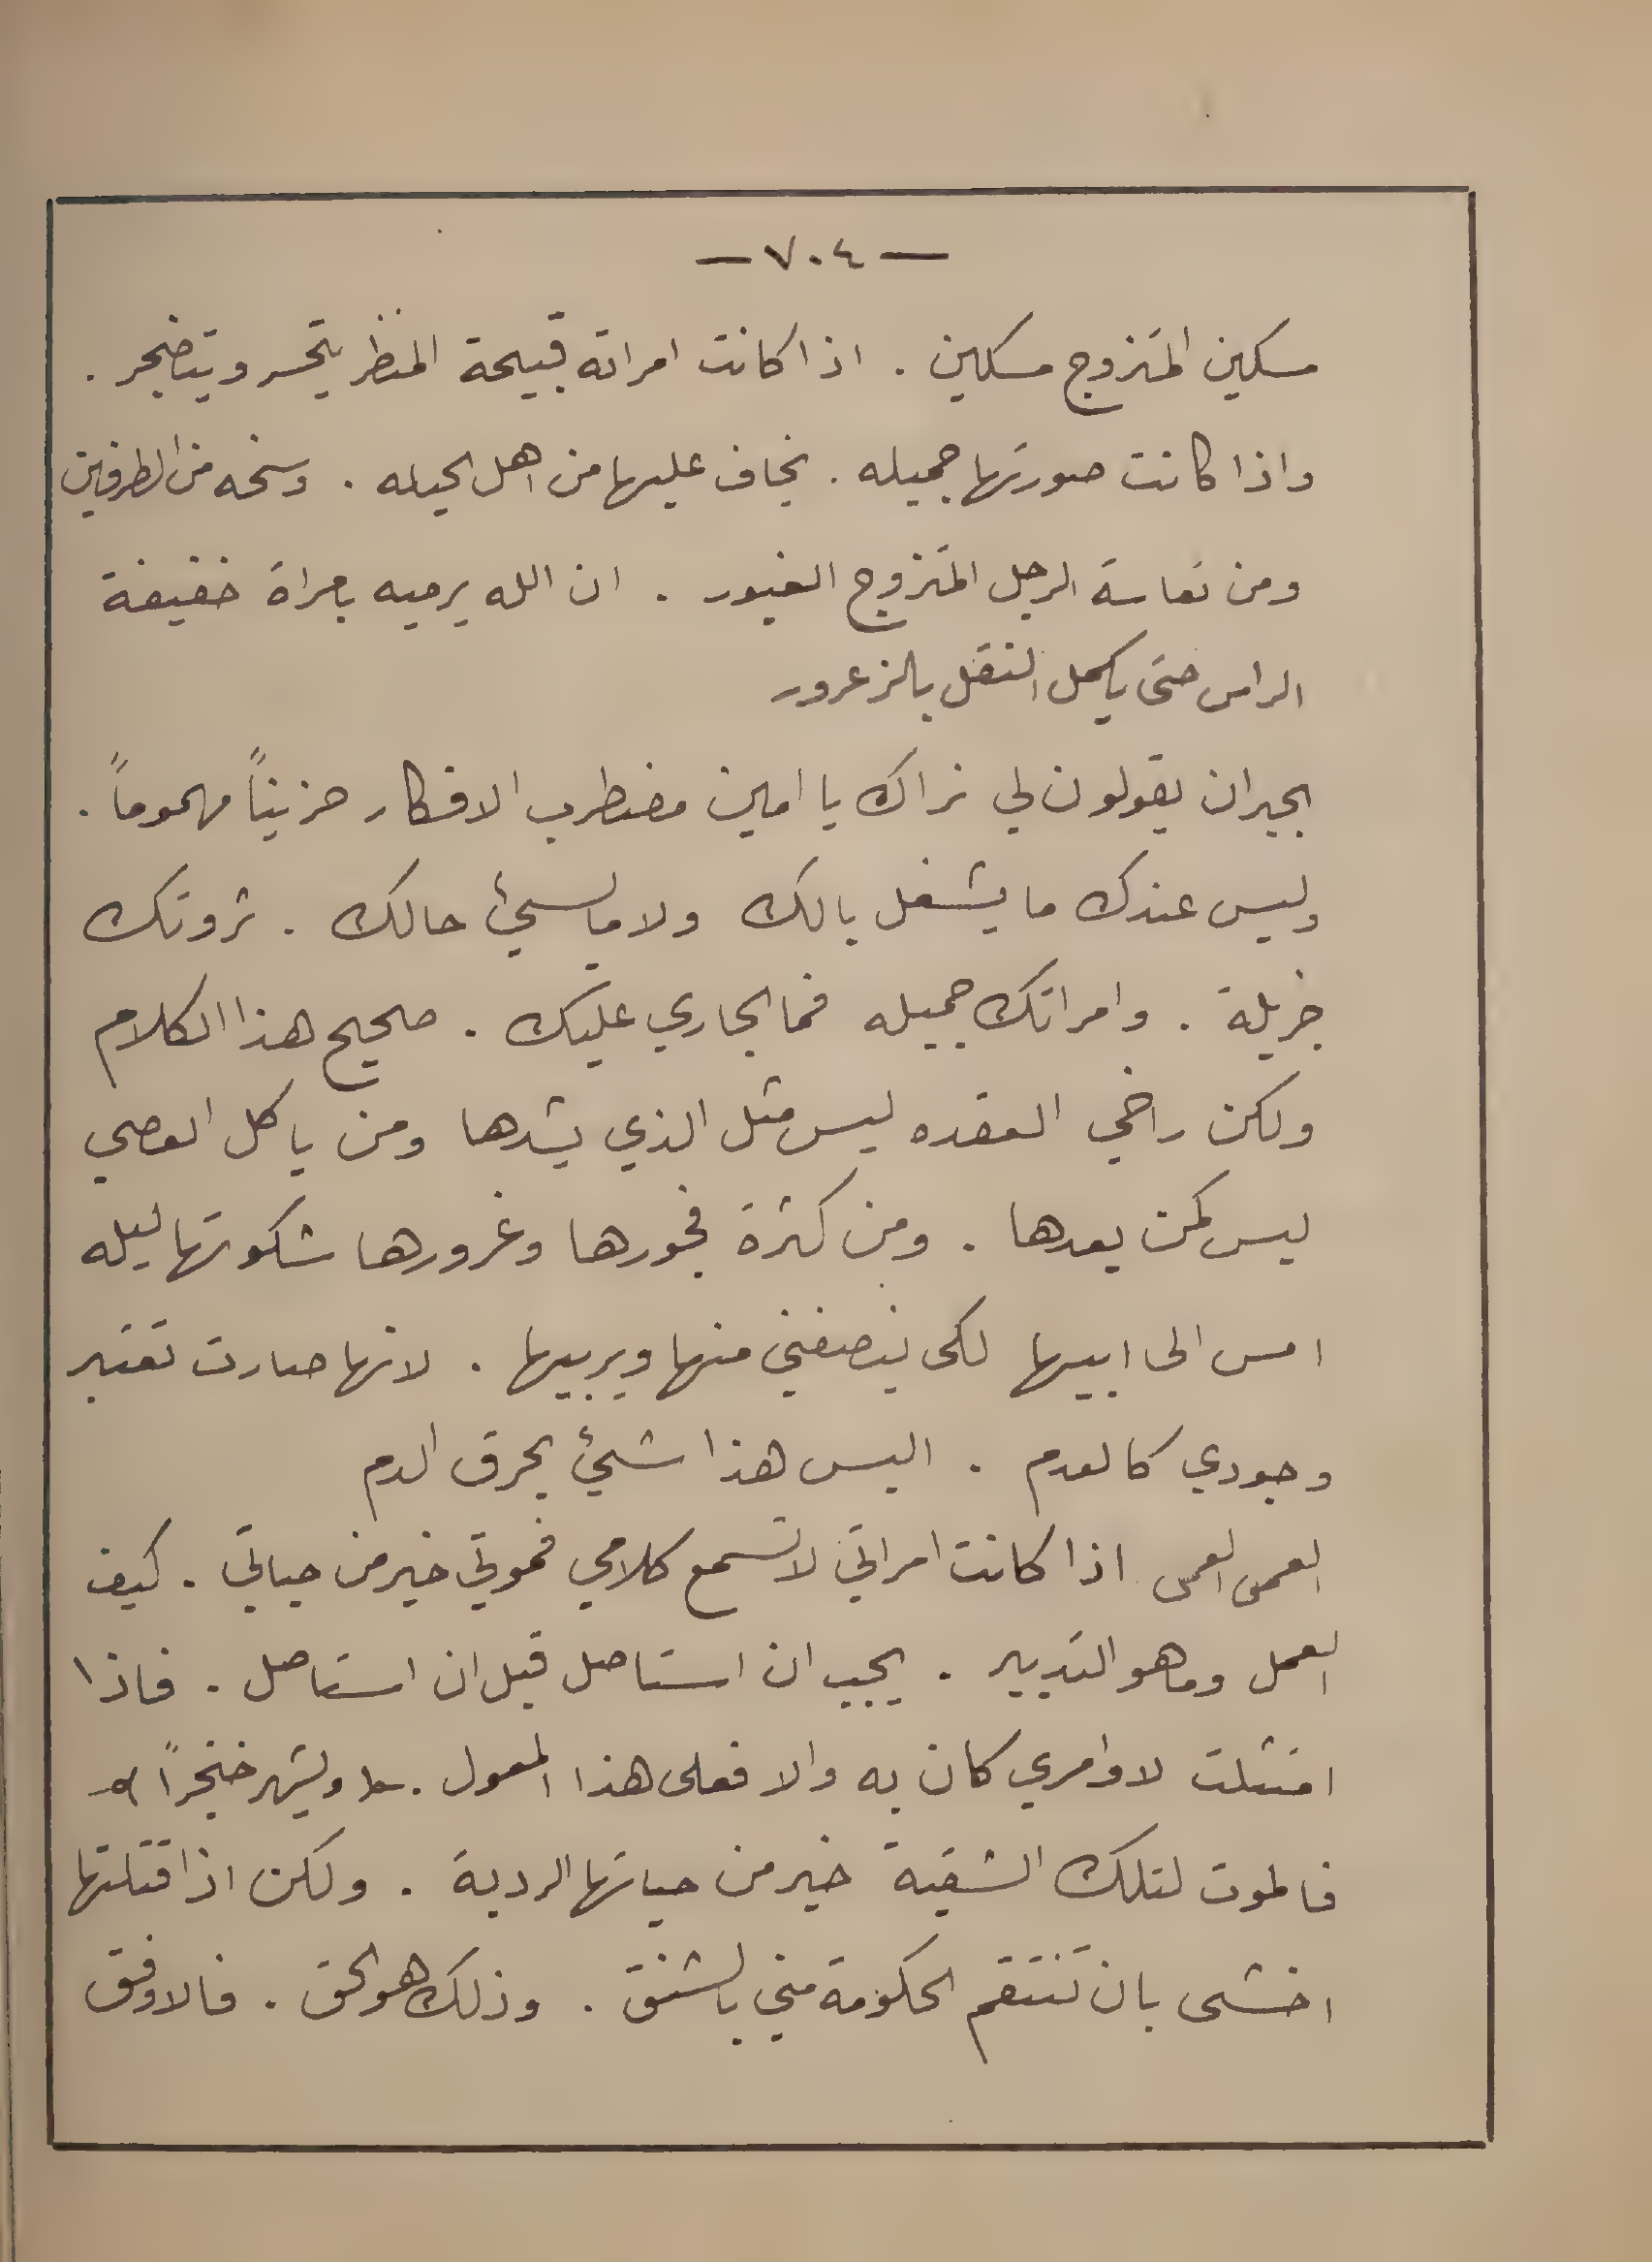 — ٧٠٤ —
مسكين المتزوج مسكين . اذا كانت امراته قبيحة المنظر يتحسر ويتضجر .
واذا كانت صورتها جميله . يخاف عليها من اهل الحيله . وسخه من الطرفين
ومن تعاسة الرجل المتزوج الغيور . ان الله يرميه بامراة خفيفة
الراس حتى يكمل النقل بالزعرور
الجيران يقولون لي نراك يا امين مضطرب الافكار حزيناً مهموماً .
وليس عندك ما يشغل بالك ولا ما يسيئ حالك . ثروتك
جزيلة . وامراتك جميله فما الجاري عليك . صحيح هذا الكلام
ولكن راخي العقده ليس مثل الذي يشدها ومن ياكل العصي
ليس كمن يعدها . ومن كثرة فجورها وغرورها شكوتها ليله
امس الى ابيها لكى ينصفني منها ويربيها . لانها صارت تعتبر
وجودي كالعدم . اليس هذا شيئ يحرق الدم
العمى العمى اذا كانت امراتي لا تسمع كلامي فموتي خير من حياتي . كيف
العمل وما هو التدبير . يجب ان استاصل قبل ان استاصل . فاذا
امتثلت لاوامري كان به والا فعلى هذا المعول . ويشهر خنجراً
فالموت لتلك الشقية خير من حياتها الردية . ولكن اذا قتلتها
اخشى بان تنتقم الحكومة مني بالشنق . وذلك هو الحق . فالاوفق